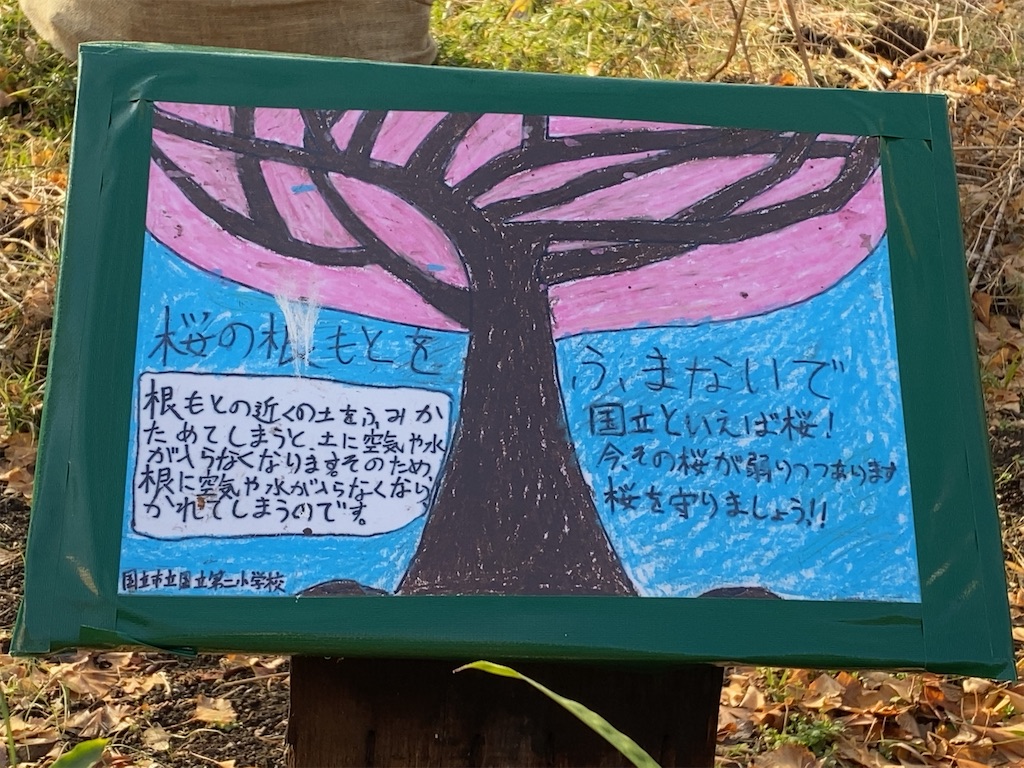 桜の根もとを
ふまないで
根もとの近くの土をふみか
ためてしまうと、土に空気や水
が入らなくなります。そのため、
根に空気や水が入らなくなり、
かれてしまうのです。
国立といえば桜!
今、その桜が弱りつつあります
桜を守りましょう!!
国立市立国立第二小学校